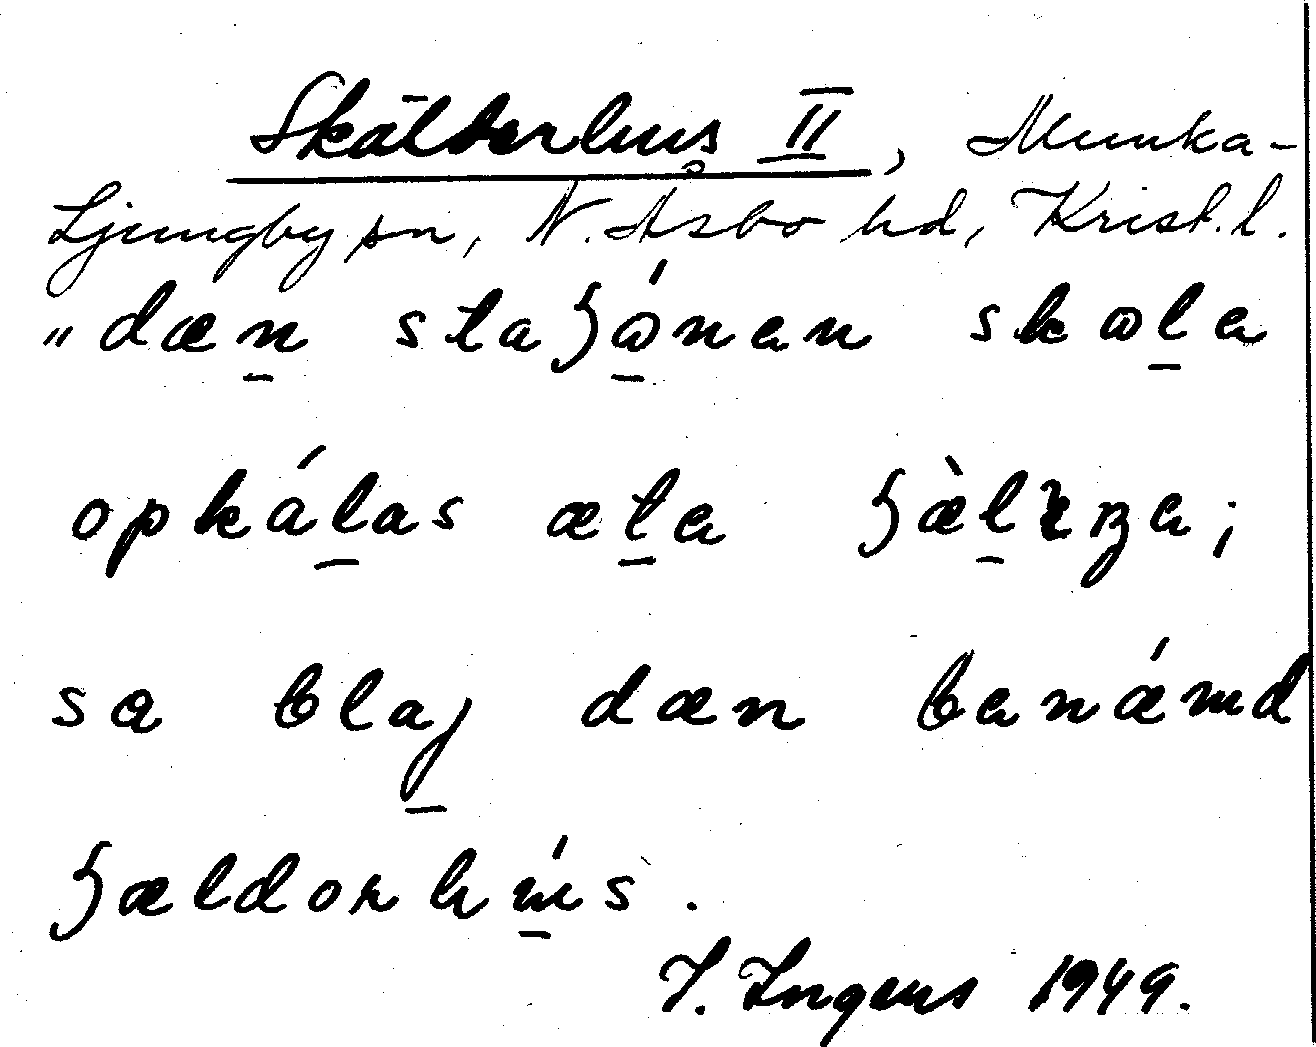 Skälderhus II, Munka-
Ljungby sn, N. Åsbo hd, Krist. l.
"dæn staʃónen skola
opkálas æta ʃæ̀lʀɪŋa;
sa blaj dæn benámd
ʃældorhús.
I. Ingers 1949.